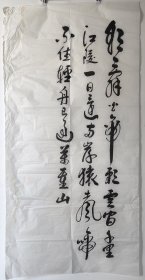 朝辞白帝彩雲間千里
江陵一日還两岸猿聲啼
不住輕舟已過萬重山